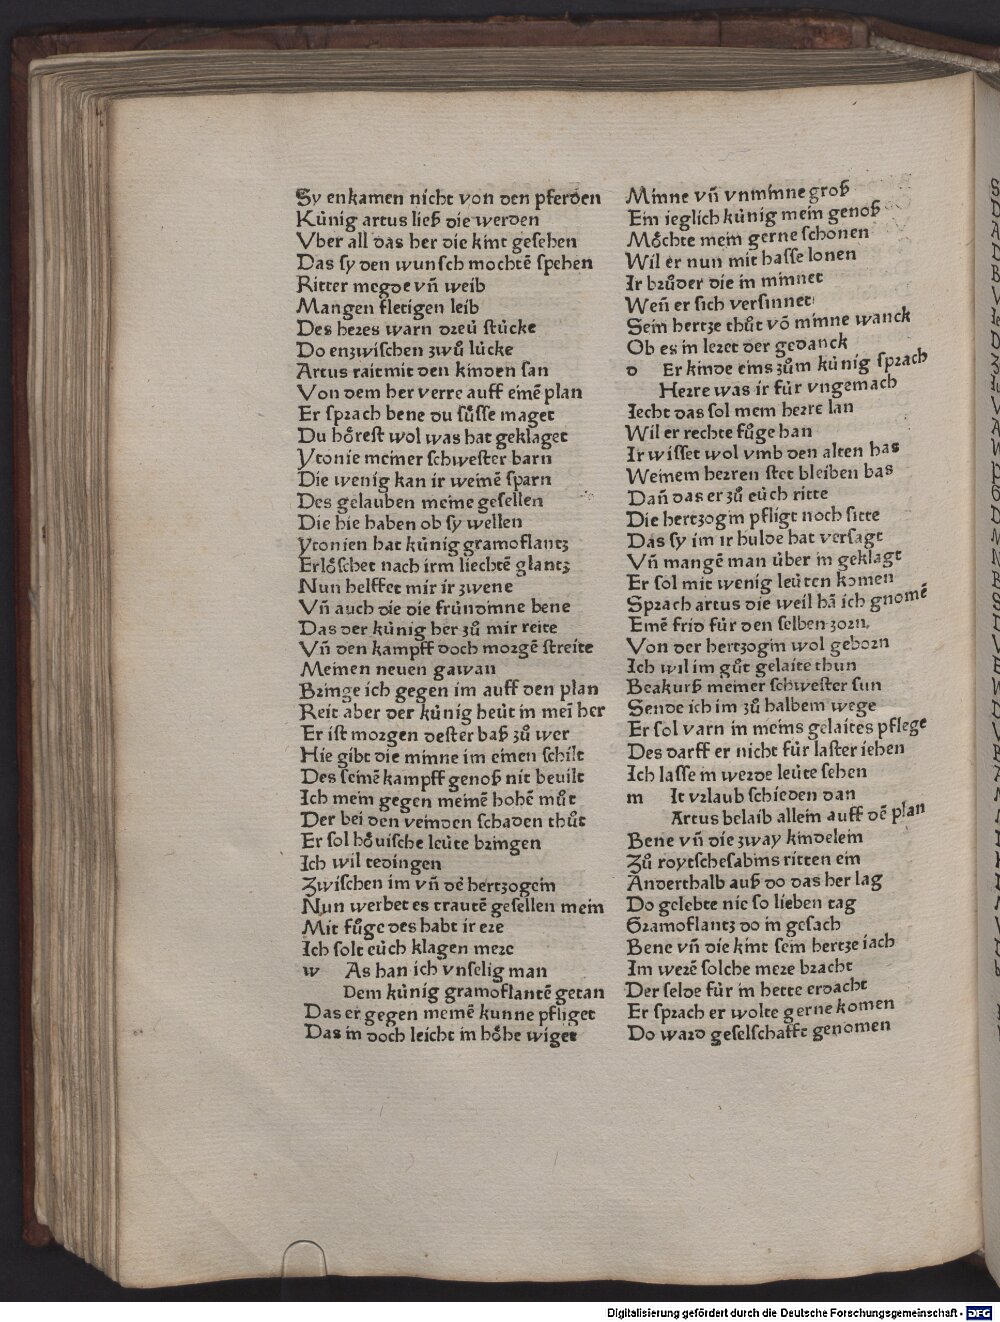 Sy enkamen nicht von den pferden
Künig artus ließ die werden
Vber all das her die kint gesehen
Das sy den wunsch mochtē spehen
Ritter megde vn̄ weib
Mangen fletigen leib
Des heres warn dreü stücke
Do enzwischen zwů lücke
Artus rait mit den kinden san
Von dem her verre auff einē plan
Er sprach bene du sůsse maget
Du hôrest wol was hat geklaget
Ytonie meiner schwester barn
Die wenig kan ir weinē sparn
Des gelauben meine gesellen
Die hie haben ob sy wellen
Ytonien hat künig gramoflantz
Erlôschet nach irm liechtē glantz
Nun helffet mir ir zwene
Vn̄ auch die die fründinne bene
Das der künig her zů mir reite
Vn̄ den kampff doch morgē streite
Meinen neuen gawan
Bringe ich gegen im auff den plan
Reit aber der künig heüt in mei͂ her
Er ist morgen dester baß zů wer
Hie gibt die minne im einen schilt
Des seinē kampff genoß nit beuilt
Ich mein gegen meinē hohē můt
Der bei den veinden schaden thůt
Er sol hôuische leüte bringen
Ich wil tedingen
Zwischen im vn̄ dē hertzogein
Nun werbet es trautē gesellen mein
Mit fůge des habt ir ere
Ich solt eüch klagen mere
w As han ich vnselig man
Dem künig gramoflantē getan
Das er gegen meinē kunne pfliget
Das in doch leicht in hôhe wiget
Minne vn̄ vnminne groß
Ein ieglich künig mein genoß
Môchte mein gerne schonen
Wil er nun mit hasse lonen
Ir brůder die in minnet
Wen̄ er sich versinnet
Sein hertze thůt vō minne wanck
Ob es in leret der gedanck
d Er kinde eins zům künig sprach
Herre was ir für vngemach
Iecht das sol mein herre lan
Wil er rechte fůge han
Ir wisset wol vmb den alten has
Meinem herren stet bleiben bas
Dan̄ das er zů eüch ritte
Die hertzogin pfligt noch sitte
Das sy im ir hulde hat versagt
Vn̄ mangē man über in geklagt
Er sol mit wenig leüten komen
Sprach artus die weil hā ich gnomē
Einē frid für den selben zorn
Von der hertzogin wol geborn
Ich wil im gůt gelaite thun
Beakurß meiner schwester sun
Sende ich im zů halbem wege
Er sol varn in meins gelaites pflege
Des darff er nicht für laster iehen
Ich lasse in werde leüte sehen
m It vrlaub schieden dan
Artus belaib allein auff dē plan
Bene vn̄ die zway kindelein
Zů roytschesabins ritten ein
Anderthalb auß do das her lag
Do gelebte nie so lieben tag
Gramoflantz do in gesach
Bene vn̄ die kint sein hertze iach
Im werē solche mere bracht
Der selde für in hette erdacht
Er sprach er wolte gerne komen
Do ward geselschafft genomen
Digitalisierung gefördert durch die Deutsche Forschungsgemeinschaft - DFG